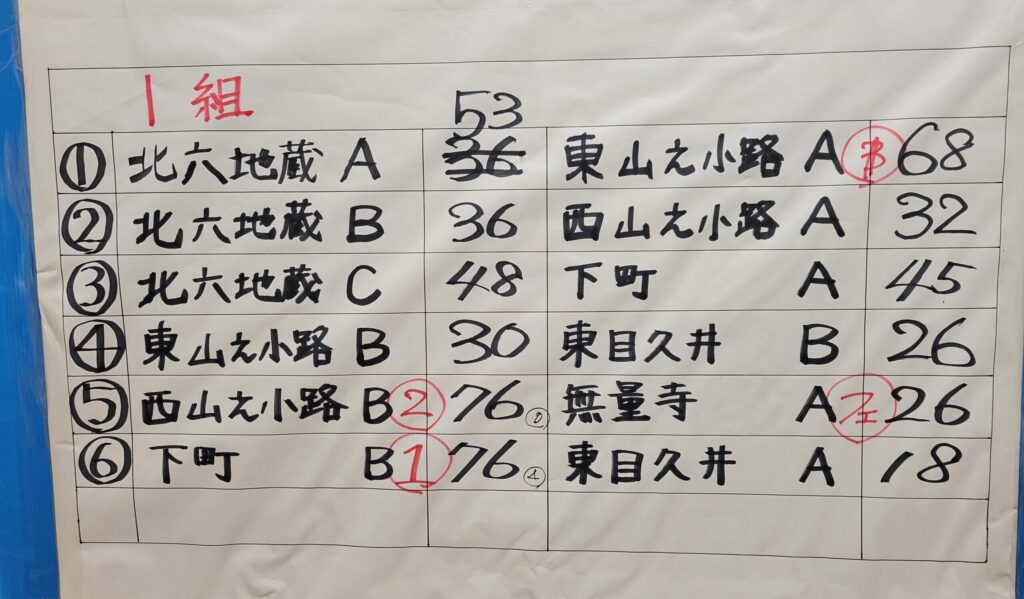 1組
53
① 北六地蔵 A 36 東山え小路 A 68
② 北六地蔵 B 36 西山え小路 A 32
③ 北六地蔵 C 48 下町 A 45
④ 東山え小路 B 30 東目久井 B 26
⑤ 西山え小路 B 2 76 無量寺 A フェ 26
⑥ 下町 B 1 76 東目久井 A 18